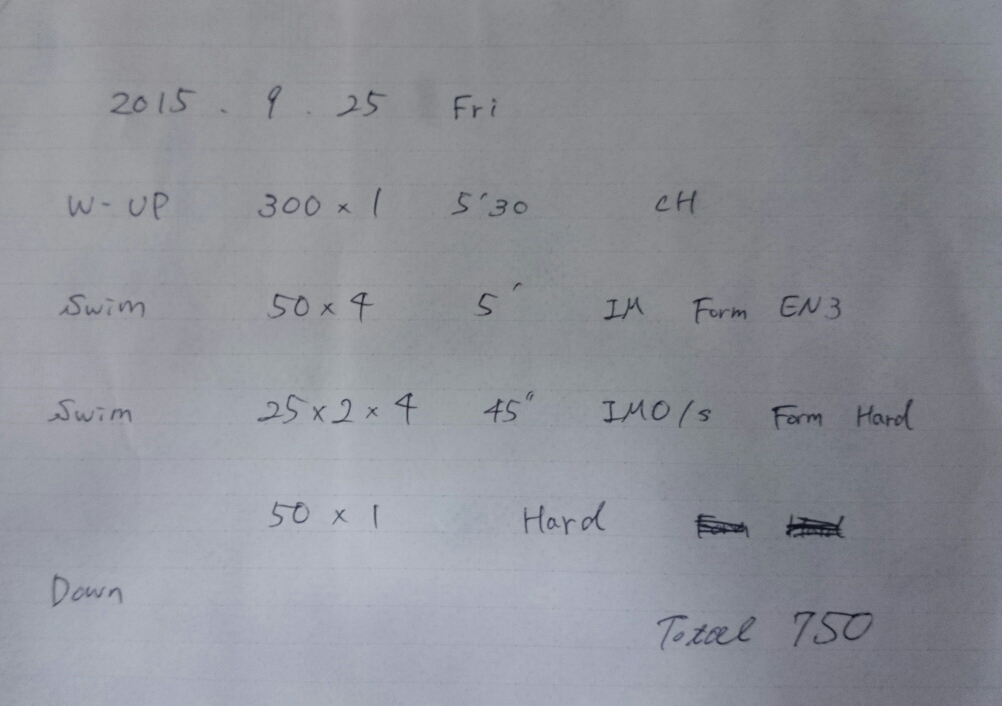 2015 . 9 . 25 Fri
W-UP 300 × 1 5'30 CH
Swim 50 × 4 5' IM Form EN3
Swim 25 × 2 × 4 45" IMO/s Form Hard
50 × 1 Hard
Down
Total 750